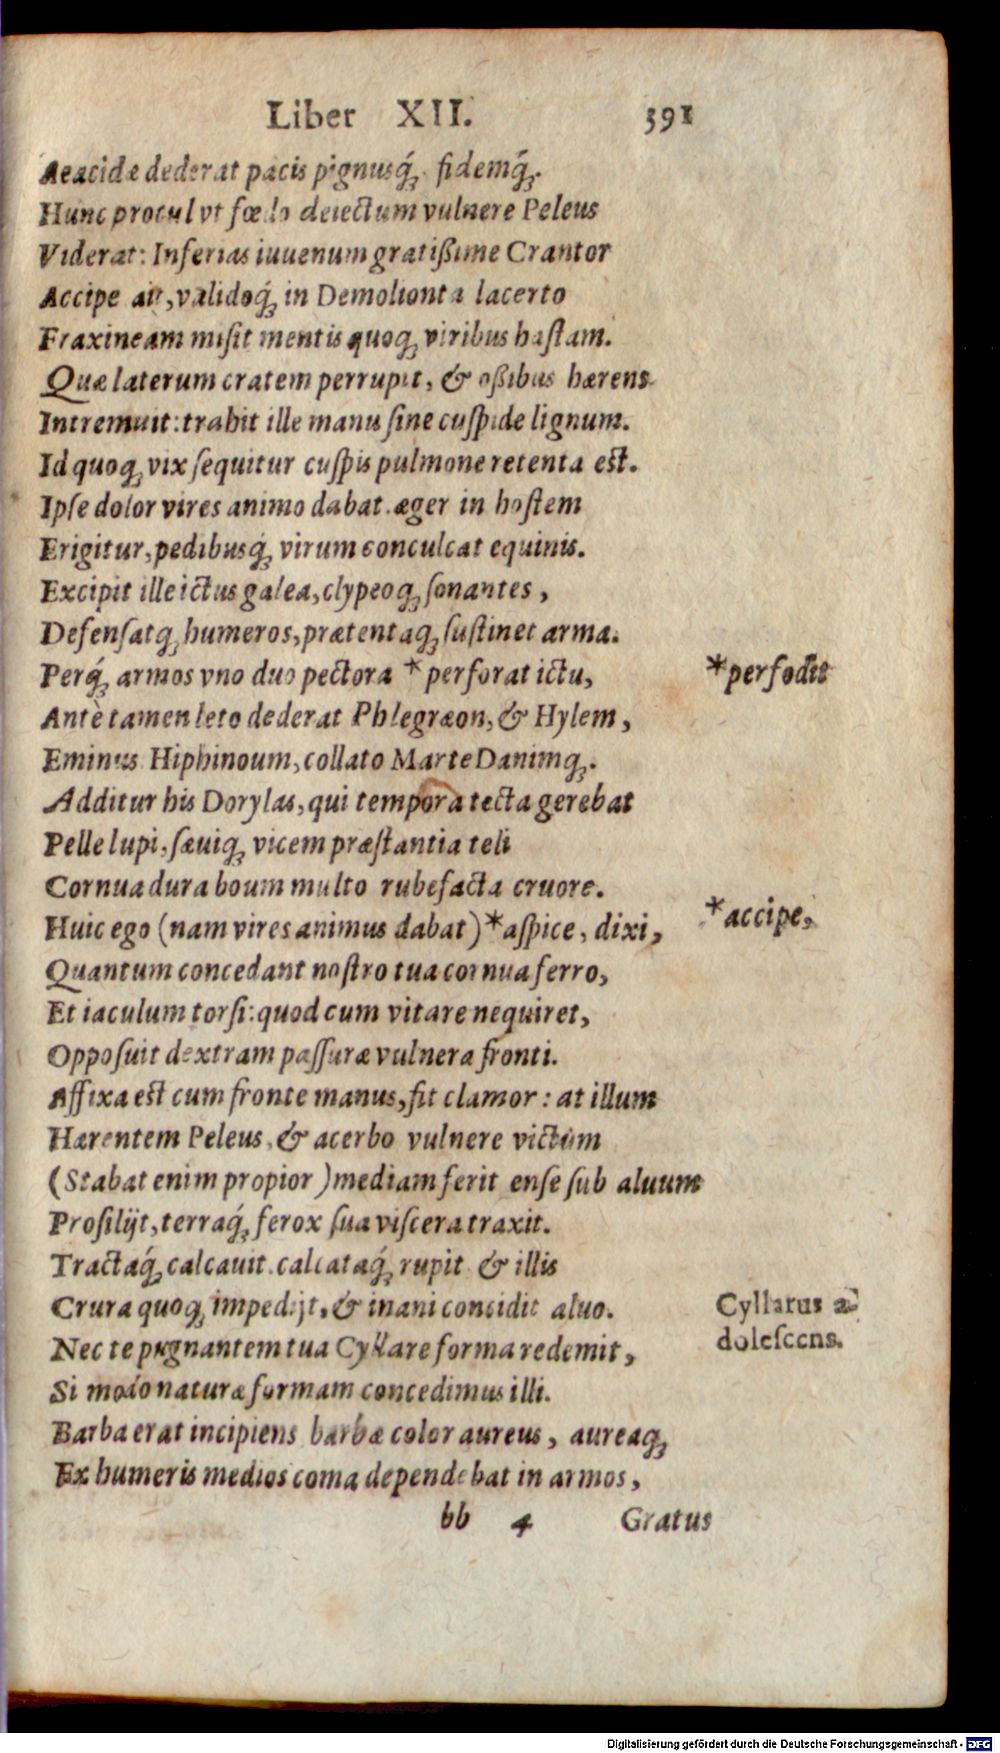 Liber XII. 391
Aeacidæ dederat pacis pignusq́; fidemq́;.
Hunc procul vt fœdo deiectum vulnere Peleus
Viderat: Inferias iuuenum gratißime Crantor
Accipe ait, validoq́; in Demolionta lacerto
Fraxineam misit mentis quoq; viribus hastam.
Quæ laterum cratem perrupit, & oßibus hærens
Intremuit: trahit ille manu sine cuspide lignum.
Id quoq; vix sequitur cuspis pulmone retenta est.
Ipse dolor vires animo dabat. æger in hostem
Erigitur, pedibusq́; virum conculcat equinis.
Excipit ille ictus galea, clypeoq; sonantes,
Defensatq; humeros, prætentaq; sustinet arma.
Perq́; armos vno duo pectora *perforat ictu, *perfodit
Antè tamen leto dederat Phlegræon, & Hylem,
Eminus Hiphinoum, collato Marte Danimq;.
Additur his Dorylas, qui tempora tecta gerebat
Pelle lupi, sæuiq; vicem præstantia teli
Cornua dura boum multo rubefacta cruore.
Huic ego (nam vires animus dabat) *aspice, dixi, *accipe,
Quantum concedant nostro tua cornua ferro,
Et iaculum torsi: quod cum vitare nequiret,
Opposuit dextram passuræ vulnera fronti.
Affixa est cum fronte manus, fit clamor: at illum
Hærentem Peleus, & acerbo vulnere victum
(Stabat enim propior) mediam ferit ense sub aluum
Prosilijt, terraq́; ferox sua viscera traxit.
Tractaq́; calcauit. calcataq́; rupit & illis
Crura quoq; impedijt, & inani concidit aluo. Cyllarus a-
Nec te pugnantem tua Cyllare forma redemit, dolescens.
Si modo naturæ formam concedimus illi.
Barba erat incipiens barbæ color aureus, aureaq;
Ex humeris medios coma dependebat in armos,
bb 4 Gratus
Digitalisierung gefördert durch die Deutsche Forschungsgemeinschaft - DFG